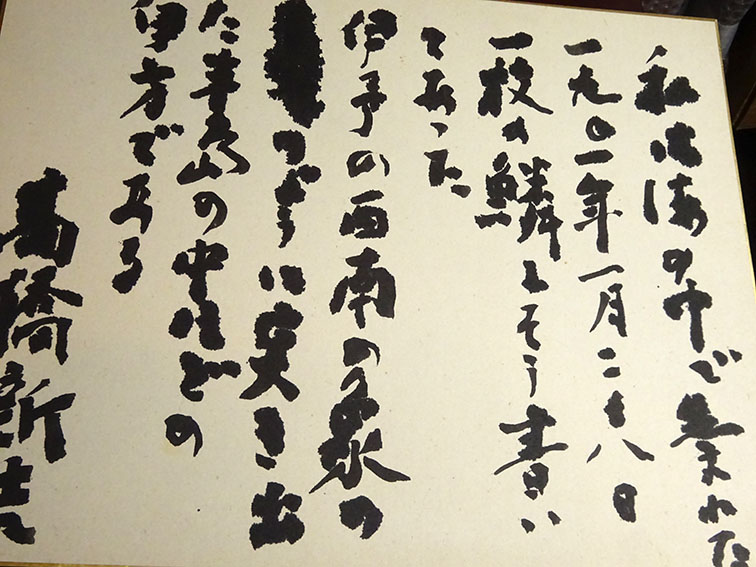 私は海の中で生れた
一九〇一年一月二十八日
一枚の鱗にそう書い
てあった
伊予の西南の象の
つのように突き出
た半島の中ほどの
伊方である
高橋新吉